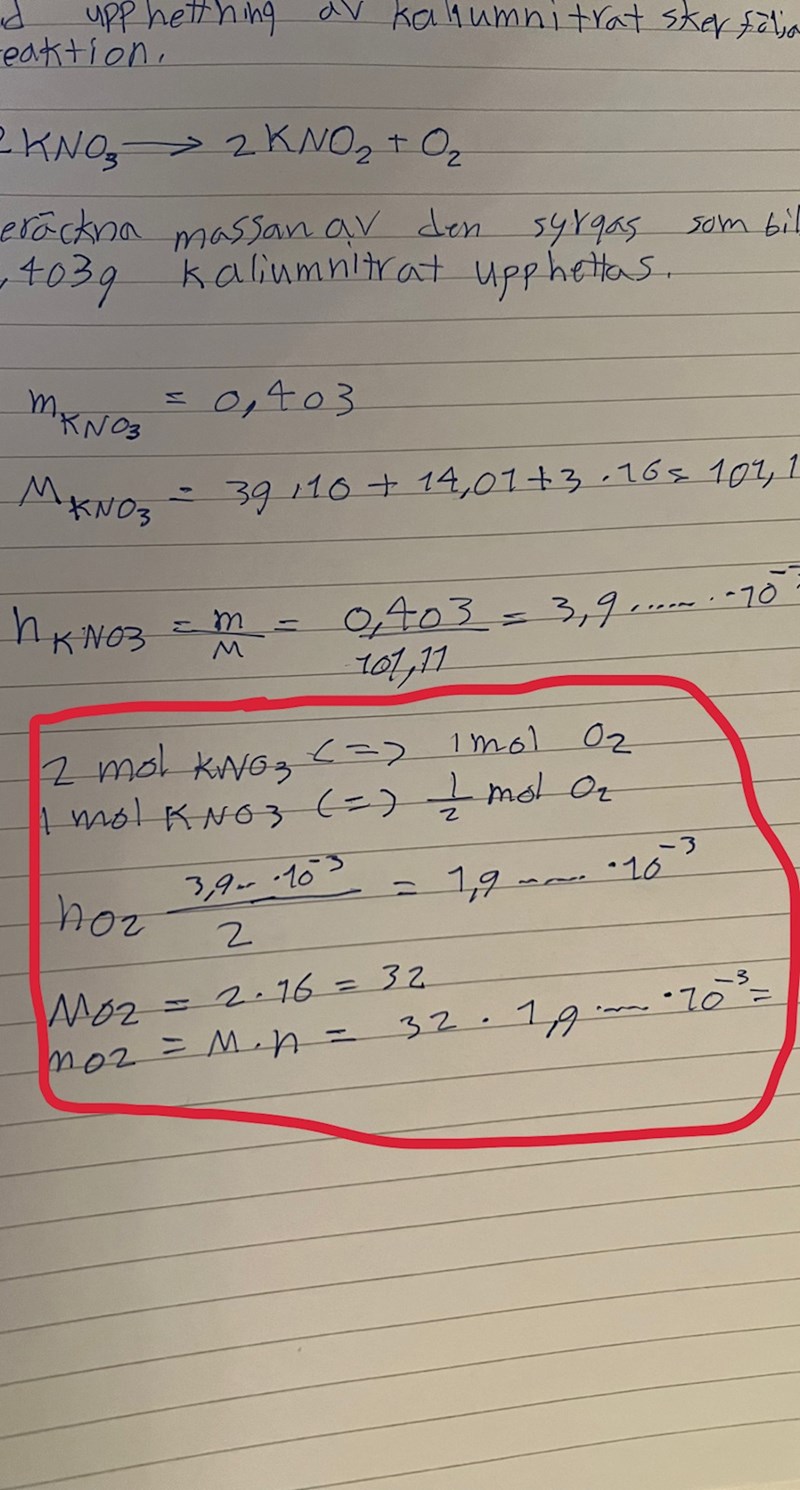 d upphettning av kaliumnitrat sker följa
eaktion.
2KNO₃ → 2KNO₂ + O₂
eräckna massan av den syrgas som bil
,403g kaliumnitrat upphettas.
m_KNO₃ = 0,403
M_KNO₃ = 39,10 + 14,01 + 3 · 16 = 101,1
n_KNO3 = m/M = 0,403/101,11 = 3,9...... · 10⁻³
2 mol KNO₃ <=> 1 mol O₂
1 mol KNO3 <=> 1/2 mol O₂
nO2 3,9... · 10⁻³/2 = 1,9...... · 10⁻³
MO2 = 2 · 16 = 32
mO2 = M · n = 32 · 1,9...... · 10⁻³ =